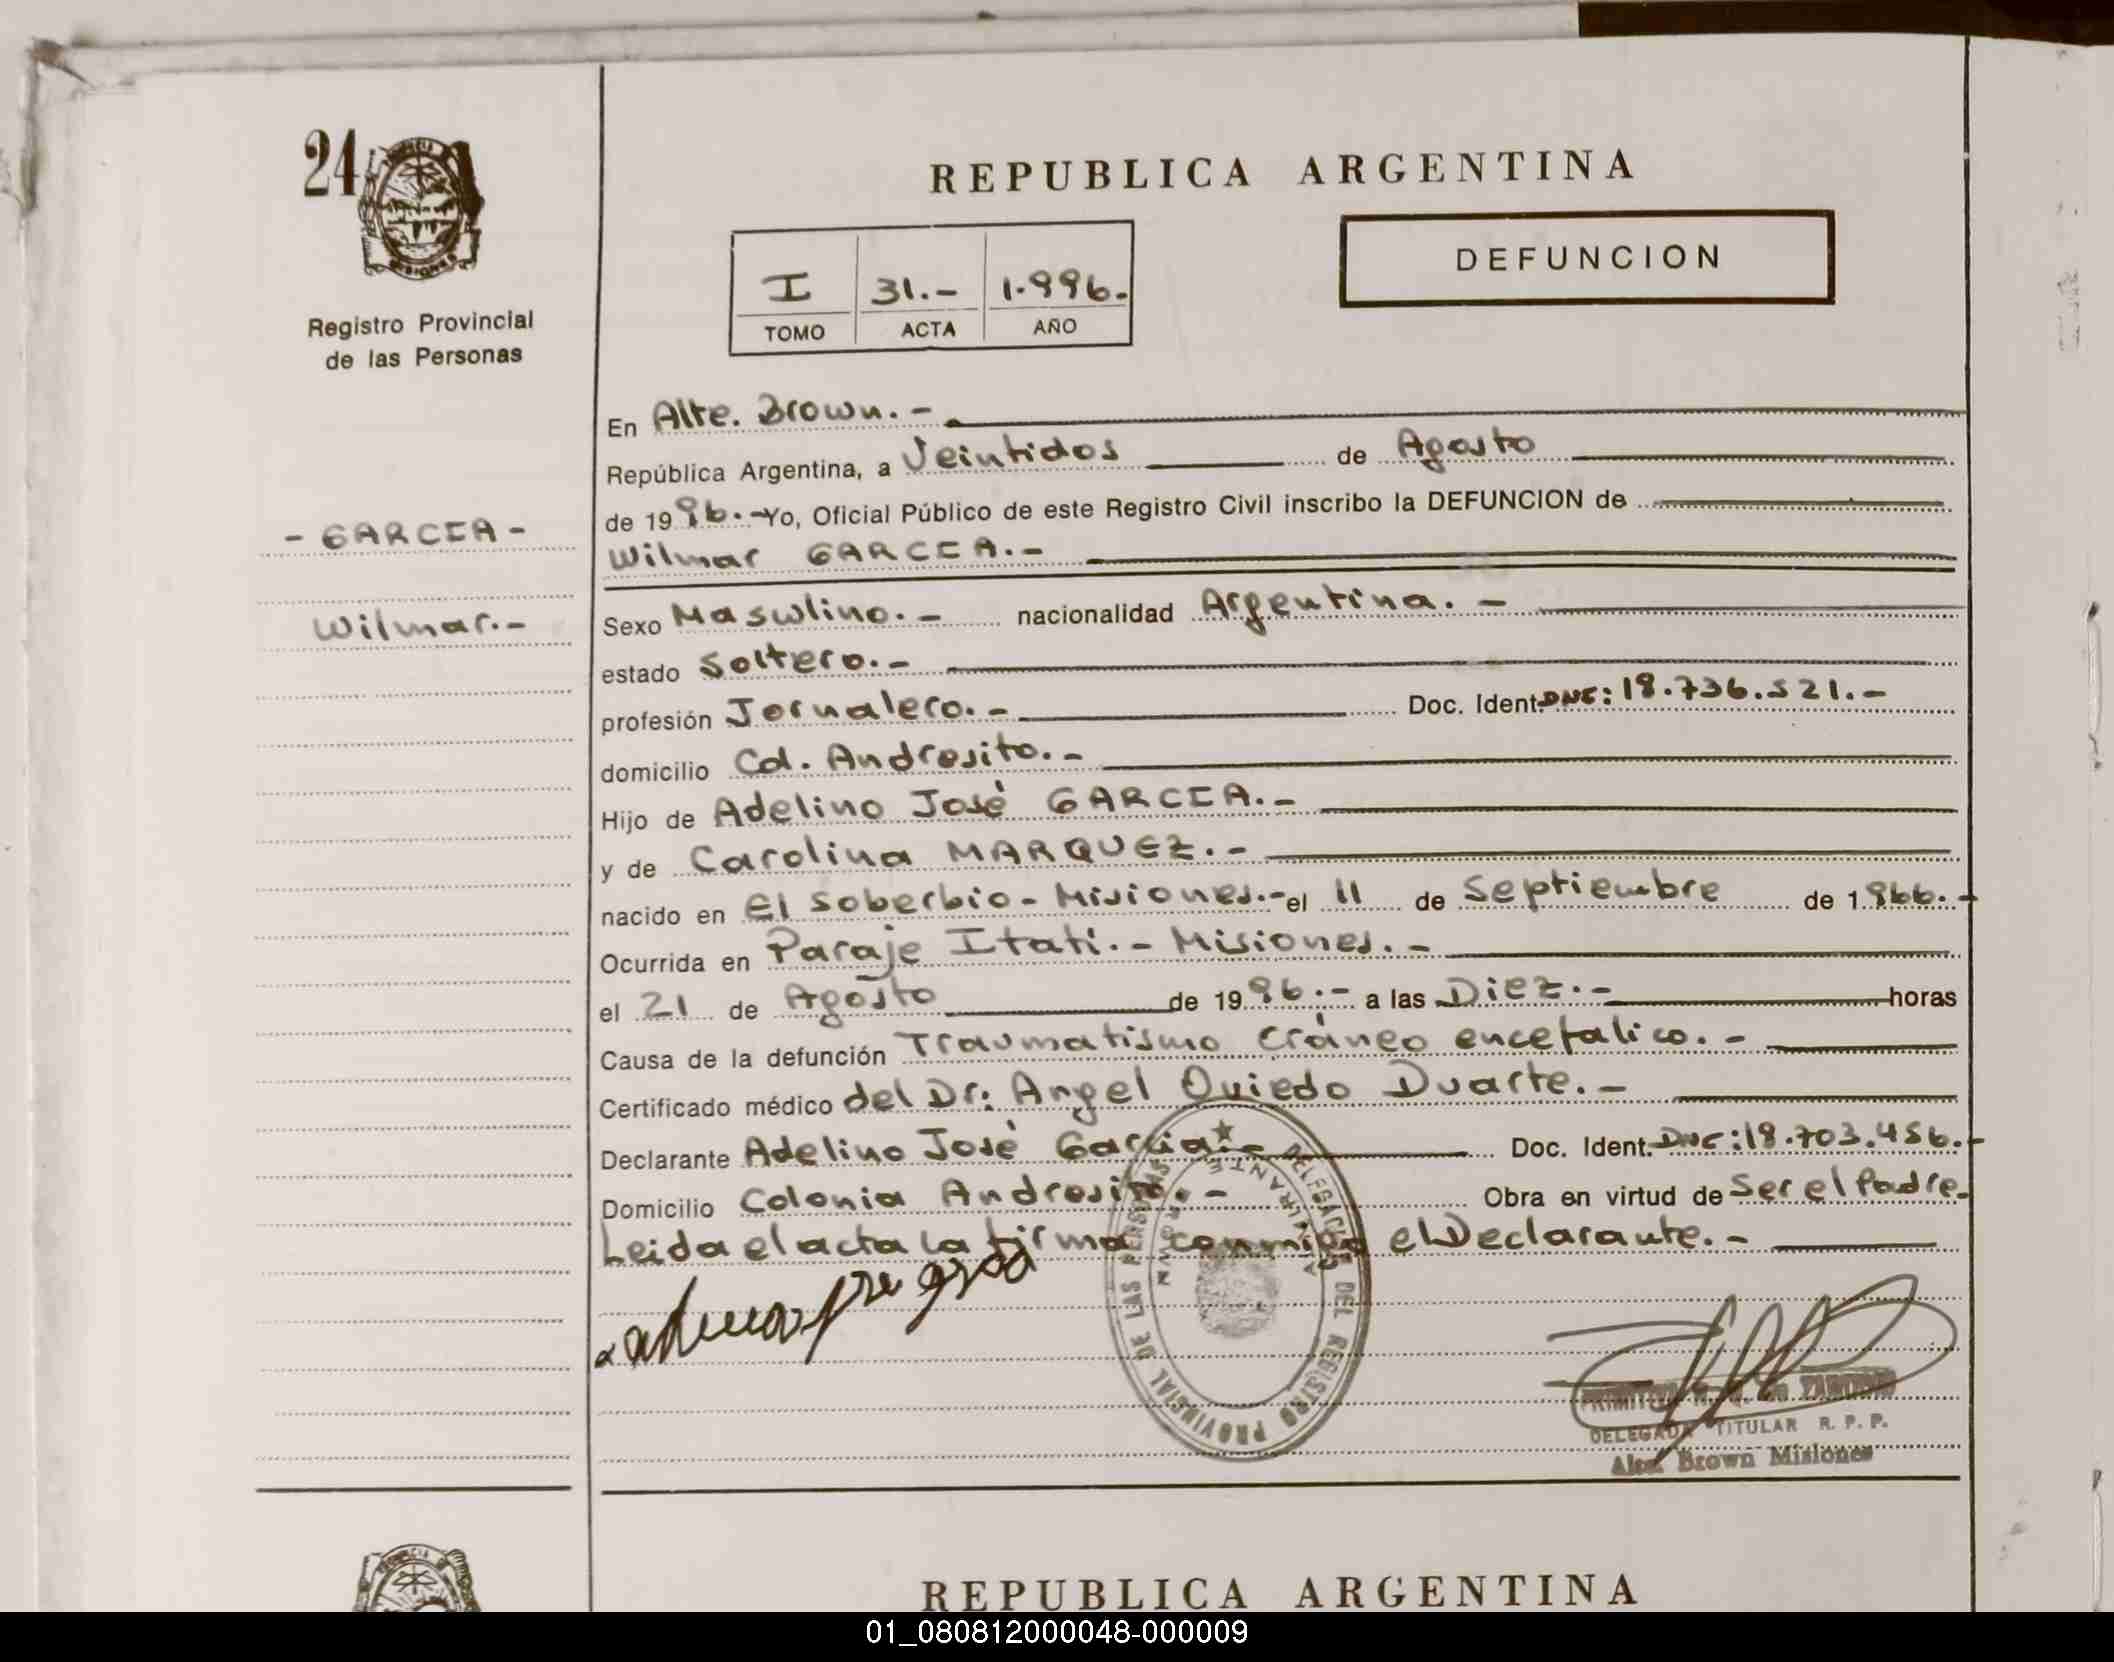 24
Registro Provincial
de las Personas
- GARCIA -
Wilmar.-
REPUBLICA ARGENTINA
I 31.- 1.996.-
TOMO ACTA AÑO
DEFUNCION
En Alte. Brown.-
República Argentina, a Veintidos de Agosto
de 1996.- Yo, Oficial Público de este Registro Civil inscribo la DEFUNCION de
Wilmar GARCIA.-
Sexo Masculino.- nacionalidad Argentina.-
estado Soltero.-
profesión Jornalero.- Doc. Ident. DNI: 18.736.521.-
domicilio Col. Andresito.-
Hijo de Adelino José GARCIA.-
y de Carolina MARQUEZ.-
nacido en El Soberbio - Misiones.- el 11 de Septiembre de 1966.-
Ocurrida en Paraje Itatí.- Misiones.-
el 21 de Agosto de 1996.- a las Diez.- horas
Causa de la defunción Traumatismo cráneo encefalico.-
Certificado médico del Dr: Angel Oviedo Duarte.-
Declarante Adelino José Garcia.- Doc. Ident. DNI: 18.703.456.-
Domicilio Colonia Andresito.- Obra en virtud de Ser el Padre.
Leida el acta la firma conmigo el Declarante.-
DELEGACION DEL REGISTRO PROVINCIAL DE LAS PERSONAS
ALMIRANTE BROWN
DELEGADA TITULAR R. P. P.
Alte. Brown Misiones
REPUBLICA ARGENTINA
01_080812000048-000009